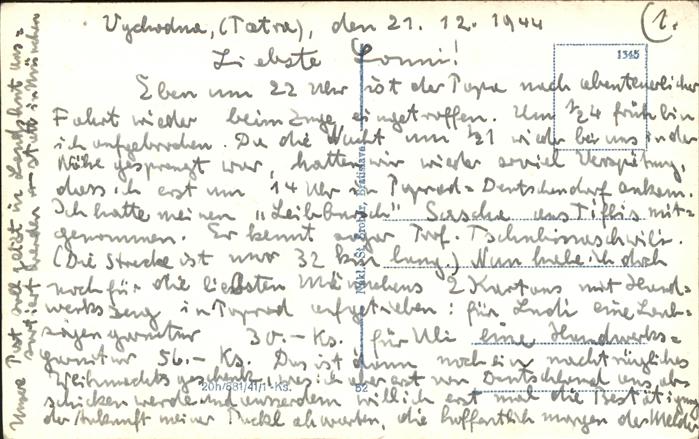 Vychodna, (Tatra), den 21. 12. 1944
(1.
Liebste Lonni!
Eben um 22 Uhr ist der Papa nach abenteuerlicher
Fahrt wieder beim Zuge eingetroffen. Um 1/2 4 früh bin
ich aufgebrochen. Da die Nacht um 1/2 1 wieder bei uns in der
Nähe gesprengt war, hatten wir wieder soviel Verspätung,
dass ich erst um 14 Uhr in Poprad=Deutschendorf ankam.
Ich hatte meinen „Leibbursch" Sascha aus Tiflis mit=
genommen. Er kennt sogar Prof.
(Die Strecke ist nur 32 km lang.) Nun habe ich doch
noch für die liebsten Männchens 2 Kartons mit Hand=
werkszeug in Poprad aufgetrieben: für Ludi eine Laub=
sägengarnitur 30.- Ks. für Uli eine Handwerks=
garnitur 56.- Ks. Das ist dann noch ein nachträgliches
Weihnachtsgeschenk, was ich aber erst von Deutschland aus ab=
schicken werde und ausserdem will ich erst mal die Bestätigung
der Ankunft meiner Packl abwarten, die hoffentlich morgen der Melder
Unsere Post soll jetzt in Landshut aus=
sortiert werden statt in München
1345
Nákl. St. Bratislava
20h/581/41/1-Ks.
52